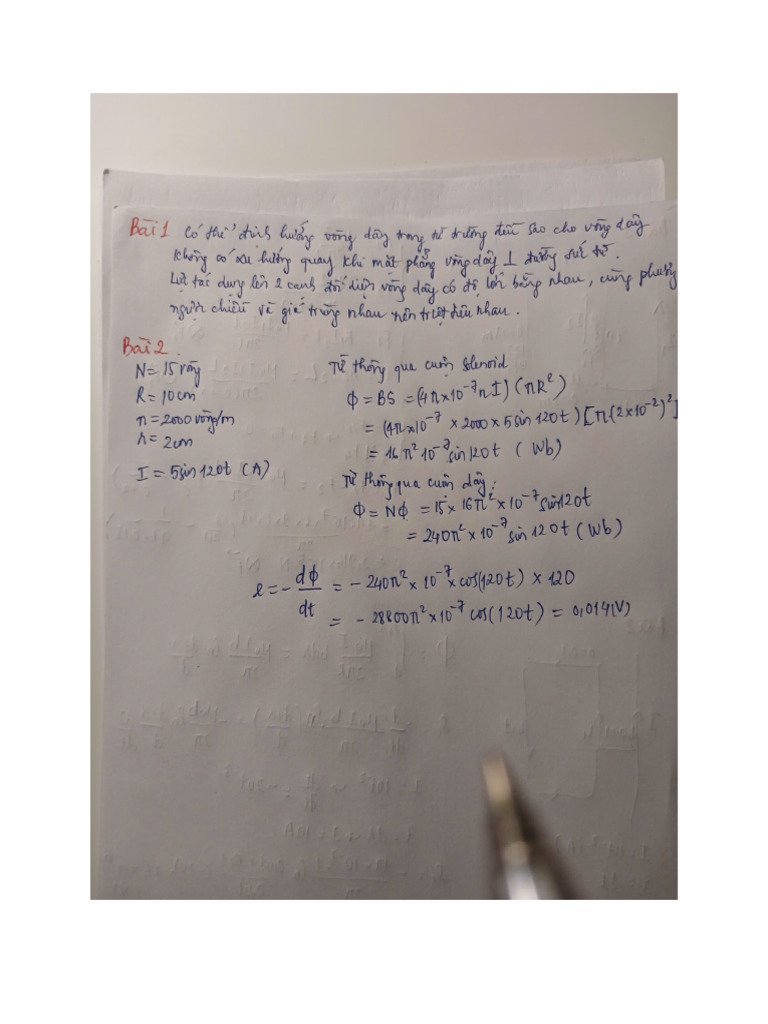 Bài 1 Có thể định hướng vòng dây trong từ trường đều sao cho vòng dây
không có xu hướng quay khi mặt phẳng vòng dây ⊥ đường sức từ.
Lực tác dụng lên 2 cạnh đối diện vòng dây có độ lớn bằng nhau, cùng phương
ngược chiều và giá trùng nhau nên triệt tiêu nhau.
Bài 2.
N = 15 vòng
R = 10 cm
n = 2000 vòng/m
r = 2cm
I = 5sin120t (A)
Từ thông qua cuộn solenoid
Φ = BS = (4π×10⁻⁷nI)(πR²)
= (4π×10⁻⁷ × 2000 × 5sin120t)[π(2×10⁻²)²]
= 16π²10⁻⁷sin120t (Wb)
Từ thông qua cuộn dây:
Φ = NΦ = 15 × 16π² × 10⁻⁷sin120t
= 240π² × 10⁻⁷sin120t (Wb)
e = - dΦ/dt = -240π² × 10⁻⁷ × cos(120t) × 120
= -28800π² × 10⁻⁷ cos(120t) = 0,014(V)